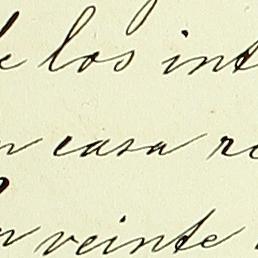 los int
casa re
veinte